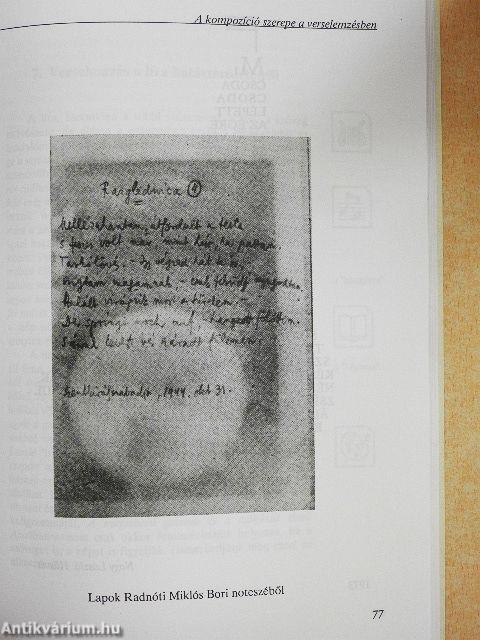 A kompozíció szerepe a verselemzésben
Razglednica (4)
Mellézuhantam, átfordult a teste
s feszes volt már, mint húr, ha pattan.
Tarkólövés. - Így végzed hát te is, -
súgtam magamnak, - csak feküdj nyugodtan.
Halált virágzik most a türelem. -
Der springt noch auf, - hangzott fölöttem.
Sárral kevert vér száradt fülemen.
Szentkirályszabadja, 1944. okt 31.
Lapok Radnóti Miklós Bori noteszéből
77
Antikvárium.hu